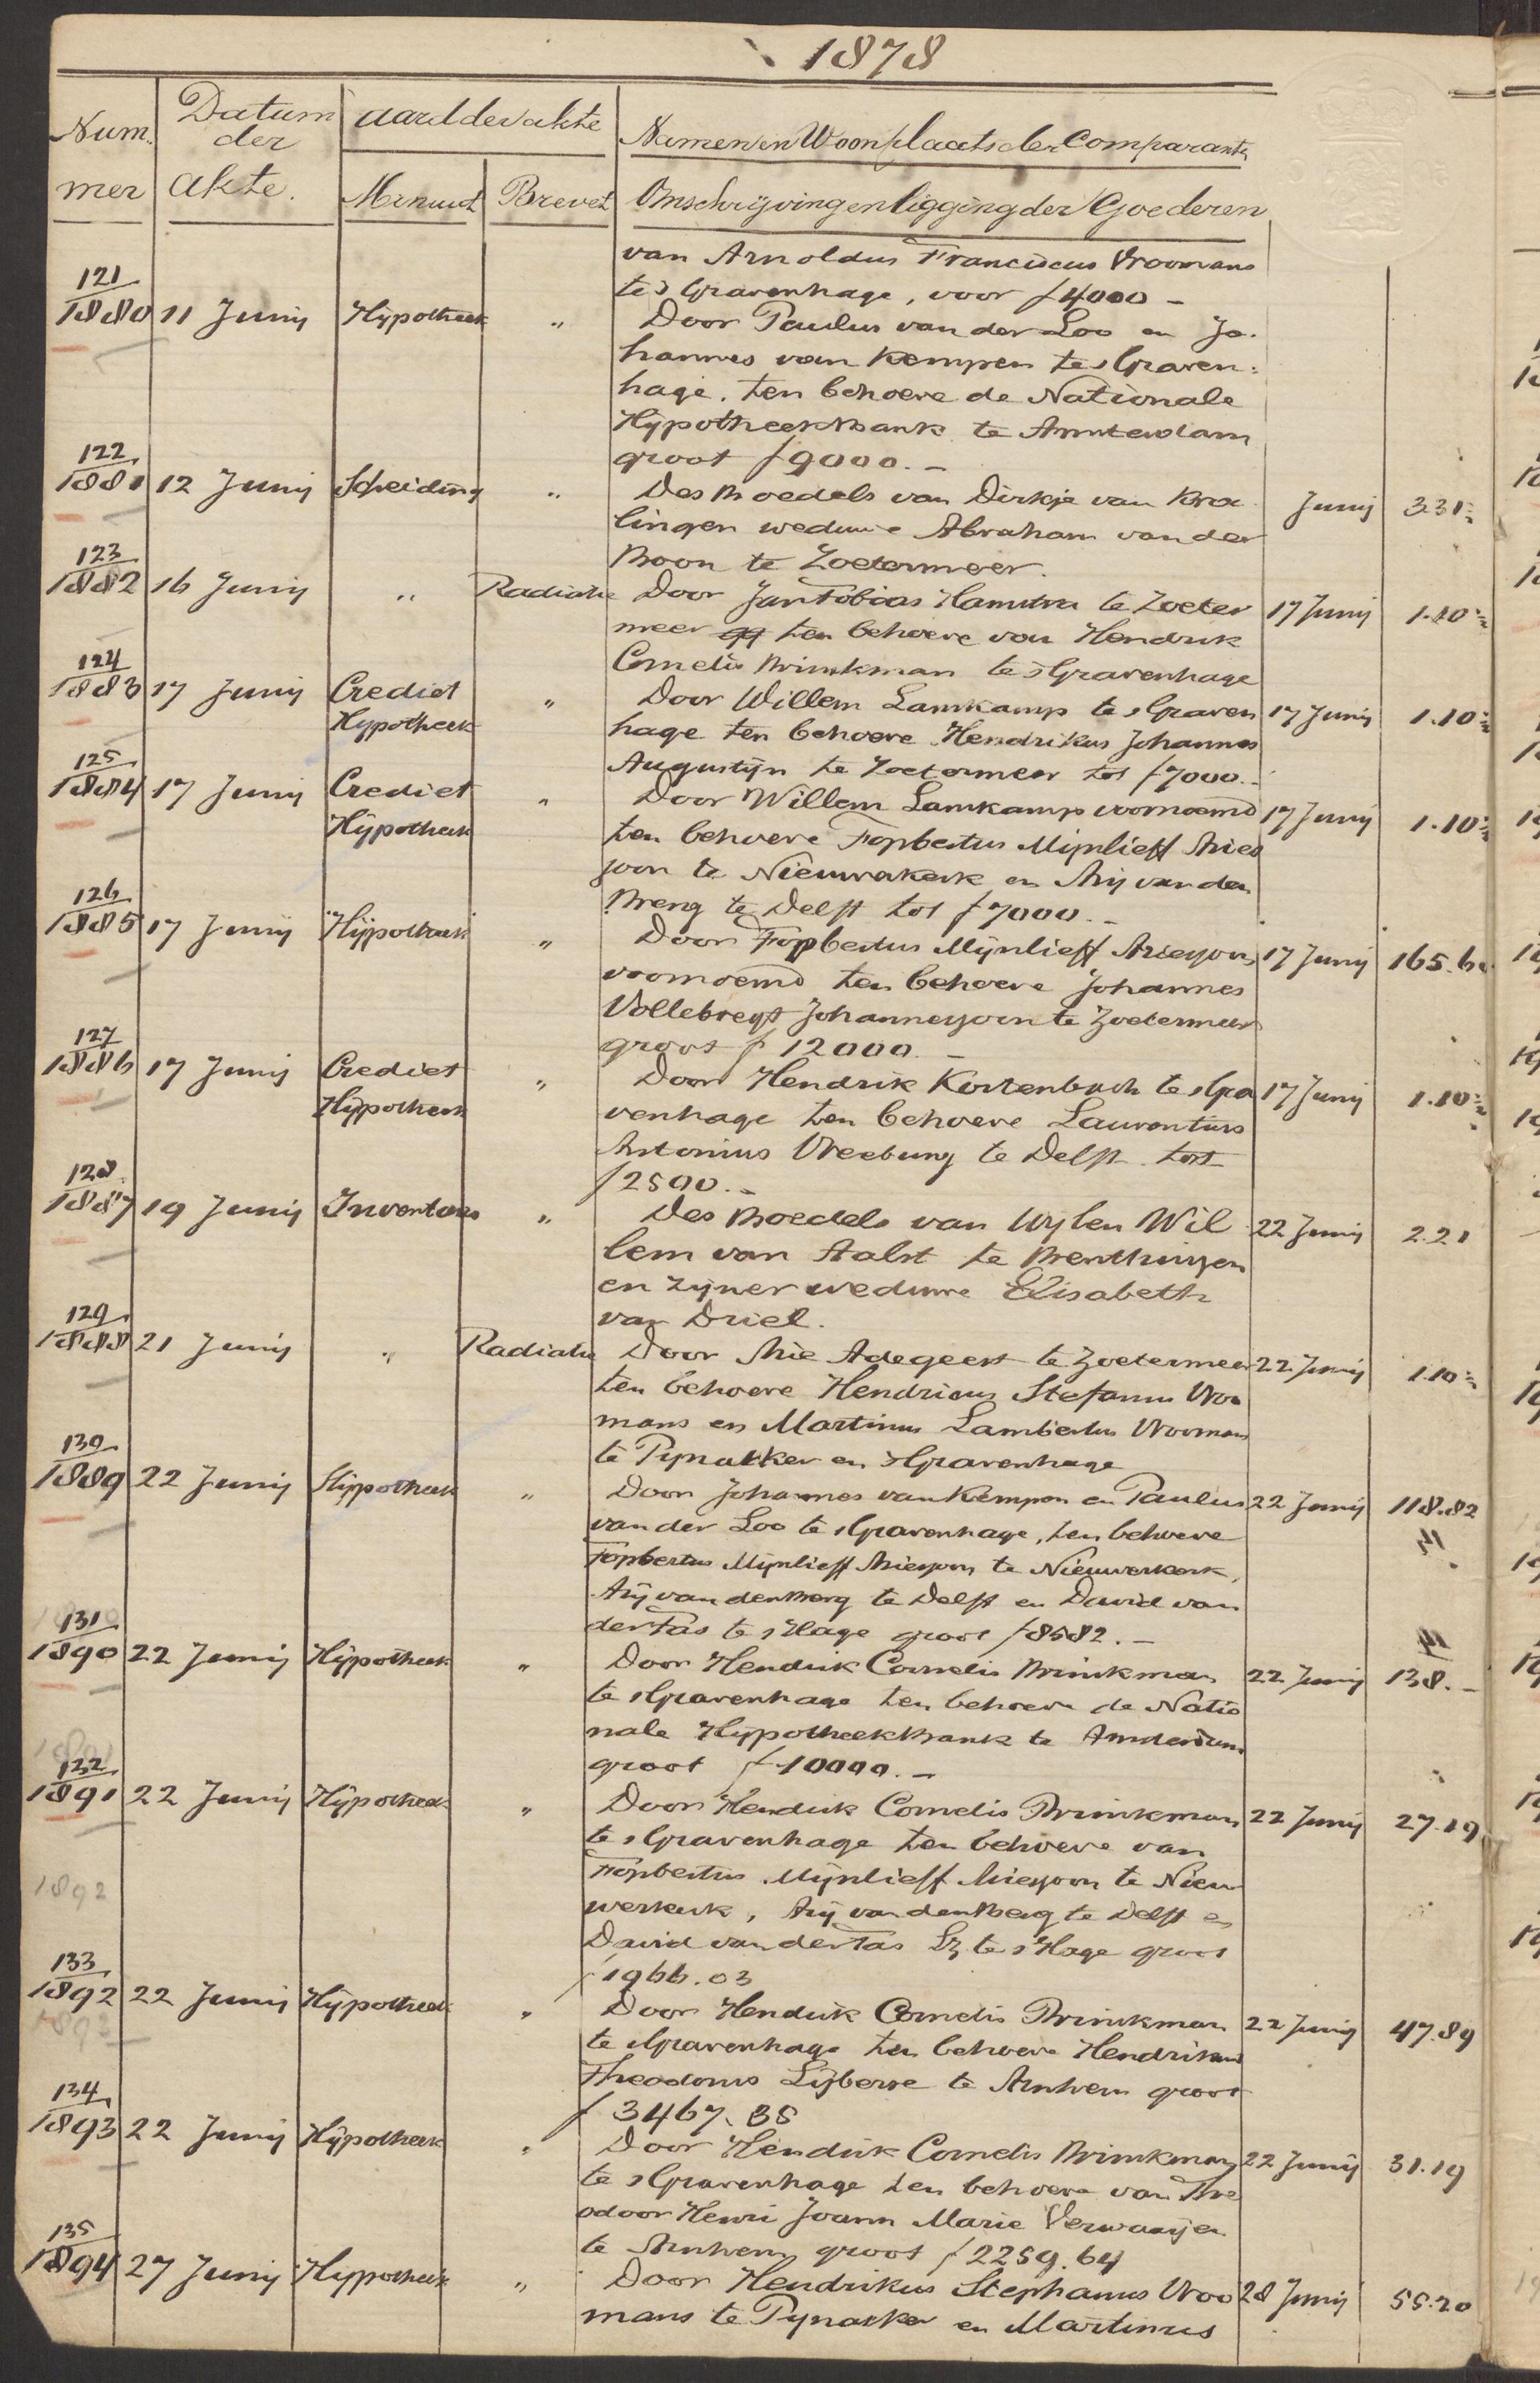 1878
Nummer Datum der Akte. aard der akte Namen en Woonplaats der Comparanten
Minuut Brevet Omschrijving en ligging der Goederen
van Arnoldus Franciscus Vroomans
te 's Gravenhage, voor f 4000 -
121
1880 11 Junij Hypotheek " Door Paulus van der Loo en Jo-
hannes van Kempen te 's Graven-
hage. ten behoeve de Nationale
Hypotheekbank te Amsterdam
groot f 9000. -
122
1881 12 Junij Scheiding " Des Boedels van Dirkje van Kra Junij 3.31
lingen weduwe Abraham van der
Boon te Zoetermeer.
123
1882 16 Junij " Radiatie Door Jan Tobias Hamstra te Zoeter 17 Junij 1.10
meer qq ten behoeve van Hendrik
Cornelis Brinkman te 's Gravenhage
124
1883 17 Junij Crediet Hypotheek " Door Willem Lamkamp te 's Graven 17 Junij 1.10
hage ten behoeve Hendrikus Johannes
Augustijn te Zoetermeer tot f 7000. -
125
1884 17 Junij Crediet Hypotheek " Door Willem Lamkamp voornoemd 17 Junij 1.10
ten behoeve Fopbertus Mijnlieff Aries
zoon te Nieuwerkerk en Arij van den
Breng te Delft tot f 7000. -
126
1885 17 Junij Hypotheek " Door Fopbertus Mijnlieff Ariezoon 17 Junij 165.60
voornoemd ten behoeve Johannes
Vollebregt Johanneszoon te Zoetermeer
groot f 12000. -
127
1886 17 Junij Crediet Hypotheek " Door Hendrik Kortenbach te 's Gra 17 Junij 1.10
venhage ten behoeve Laurentius
Antonius Vreeburg te Delft tot
f 2500. -
128
1887 19 Junij Inventaris " Des Boedels van Wylen Wil 22 Junij 2.21
lem van Aalst te Benthuizen
en zijner weduwe Elisabeth
van Driel.
129
1888 21 Junij " Radiatie Door Arie Adegeest te Zoetermeer 22 Junij 1.10
ten behoeve Hendricus Stefanus Vroo
mans en Martinus Lambertus Vroomans
te Pijnakker en 's Gravenhage
130
1889 22 Junij Hypotheek " Door Johannes van Kempen en Paulus 22 Junij 118.82
van der Loo te 's Gravenhage, ten behoeve
Fopbertus Mijnlieff Ariezoon te Nieuwerkerk,
Arij van den Berg te Delft en David van
der Tas te 's Hage groot f 8582. -
131
1890 22 Junij Hypotheek " Door Hendrik Cornelis Brinkman 22 Junij 138. -
te 's Gravenhage ten behoeve de Natio
nale Hypotheekbank te Amsterdam
groot f 10000. -
1891
132
1891 22 Junij Hypotheek " Door Hendrik Cornelis Brinkman 22 Junij 27.19
te 's Gravenhage ten behoeve van
Fopbertus Mijnlieff Ariezoon te Nieu
1892
werkerk, Arij van den Berg te Delft en
David van der Tas Lz te 's Hage groot
f 1966.03
133
1892 22 Junij Hypotheek " Door Hendrik Cornelis Brinkman 22 Junij 47.89
1893
te 's Gravenhage ten behoeve Hendrikus
Theodorus Lijberse te Arnhem groot
f 3467.38
134
1893 22 Junij Hypotheek " Door Hendrik Cornelis Brinkman 22 Junij 31.19
te 's Gravenhage ten behoeve van The
odoor Henri Joann Marie Verwaaijen
te Arnhem groot f 2259.64
135
1894 27 Junij Hypotheek " Door Hendrikus Stephanus Vroo 28 Junij 55.20
mans te Pynacker en Martinus